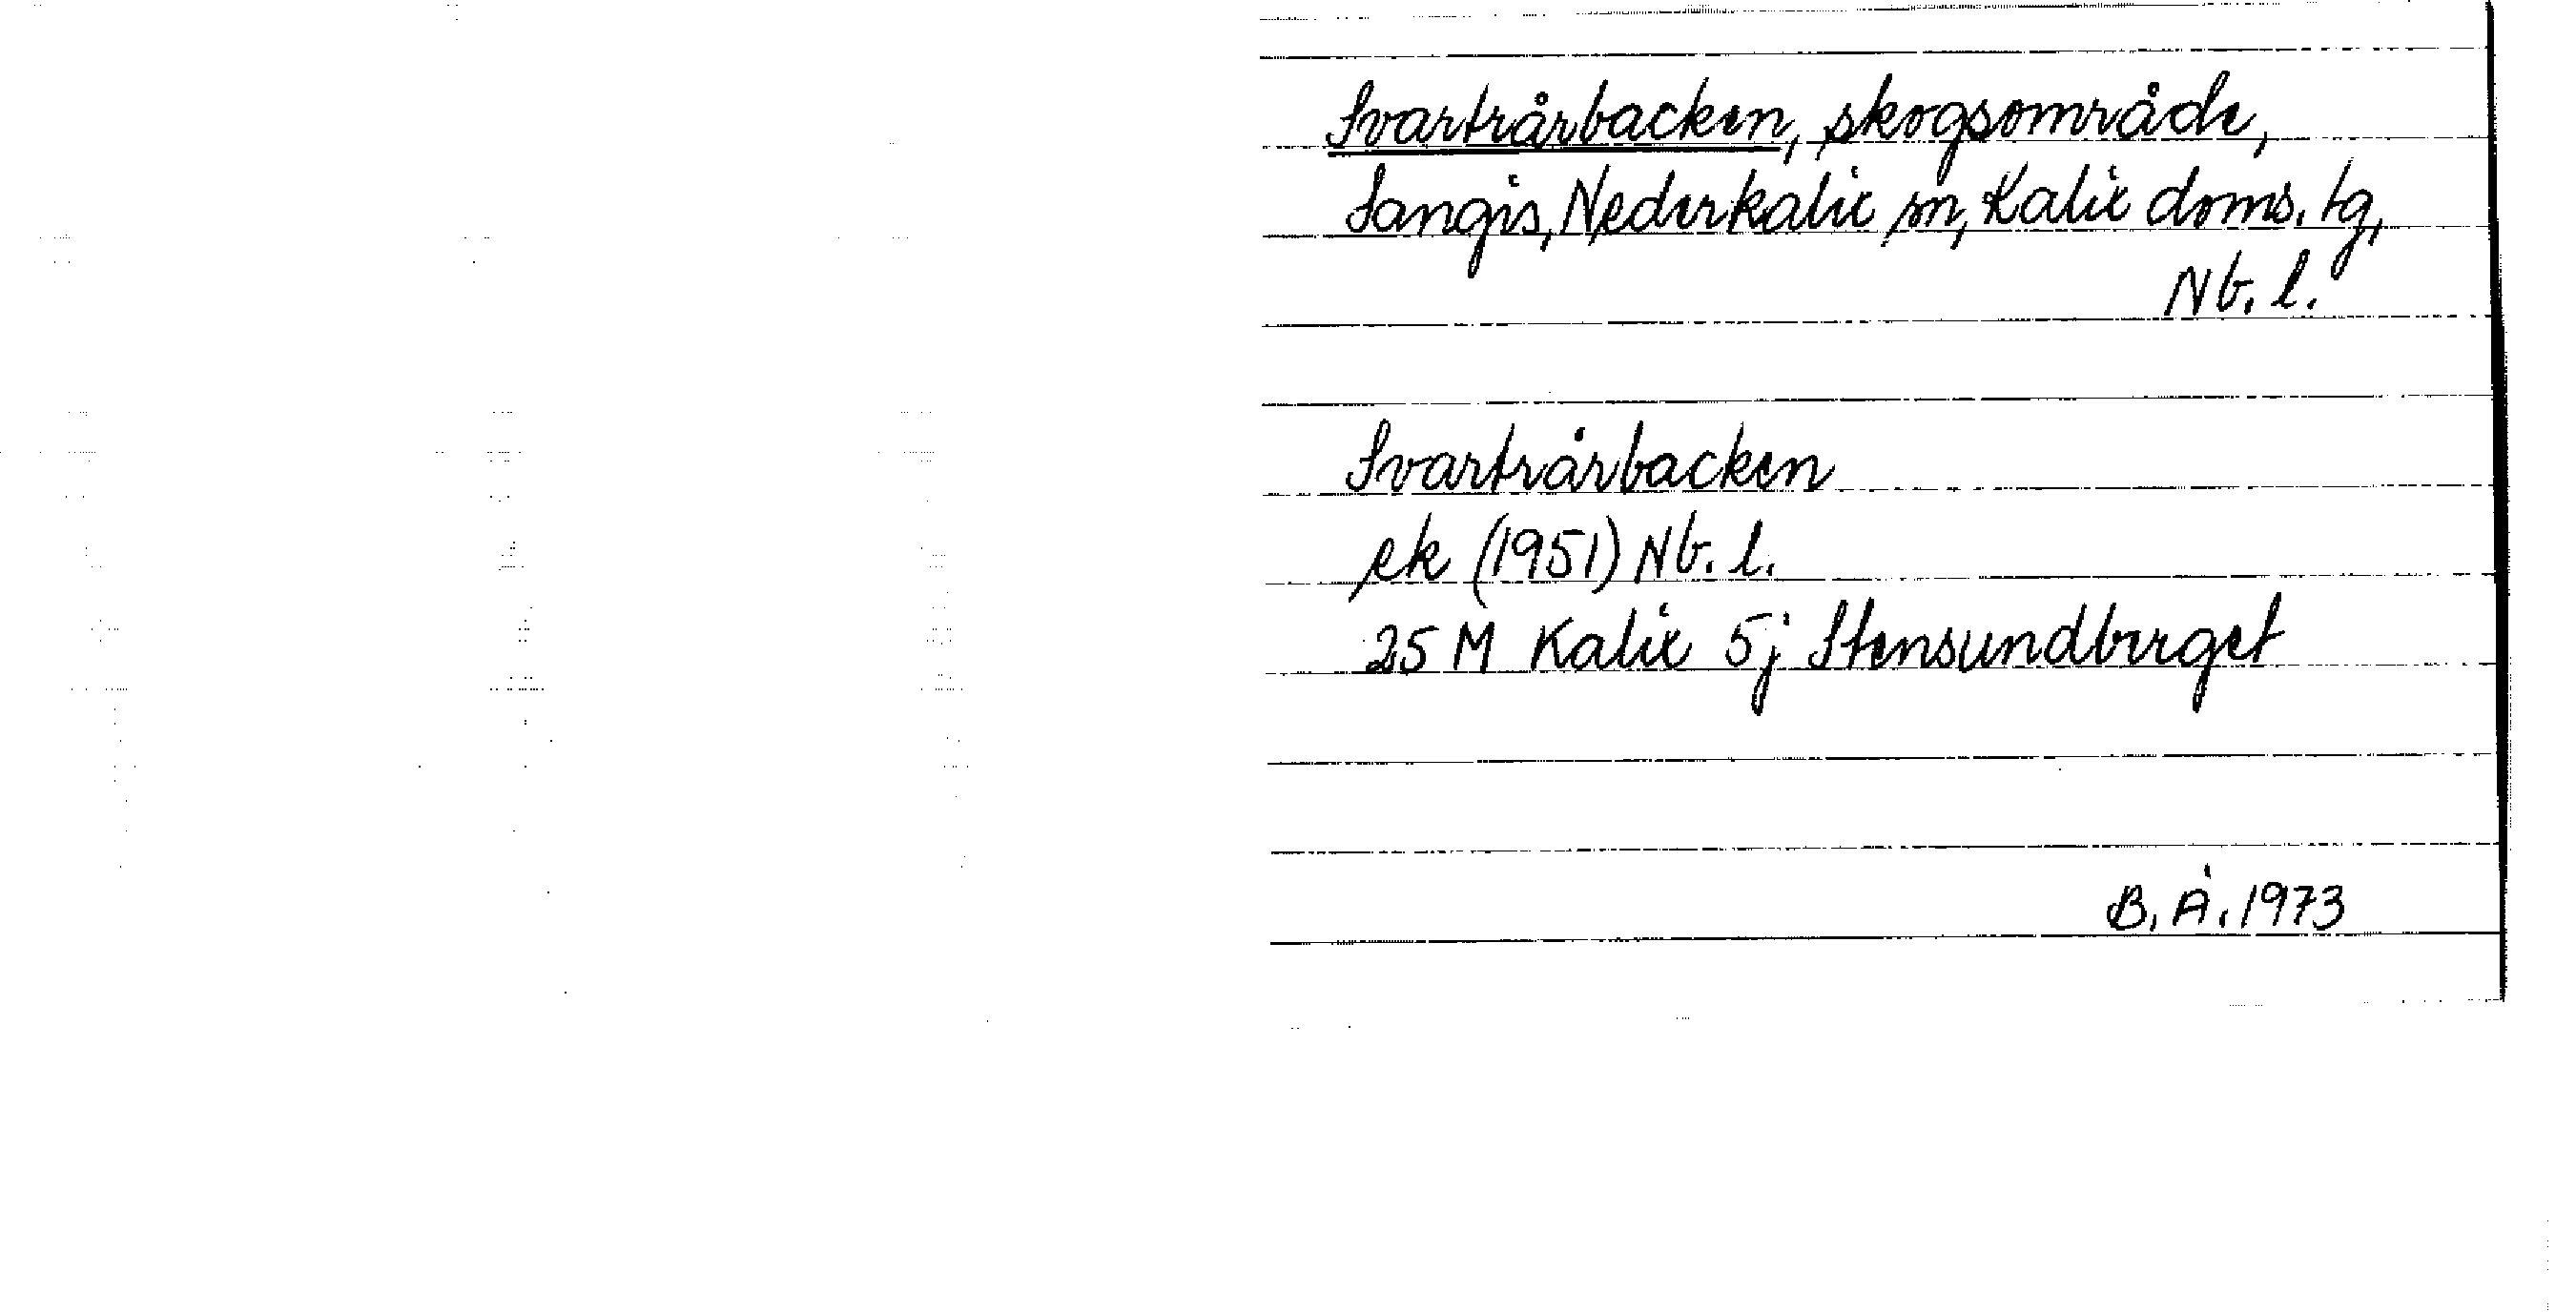 Svartrårbacken, skogsområde,
Sangis, Nederkalix sn, Kalix doms. tg,
Nb. l.
Svartrårbacken
ek (1951) Nb. l.
25 M Kalix 5j Stensundberget
B. Å. 1973